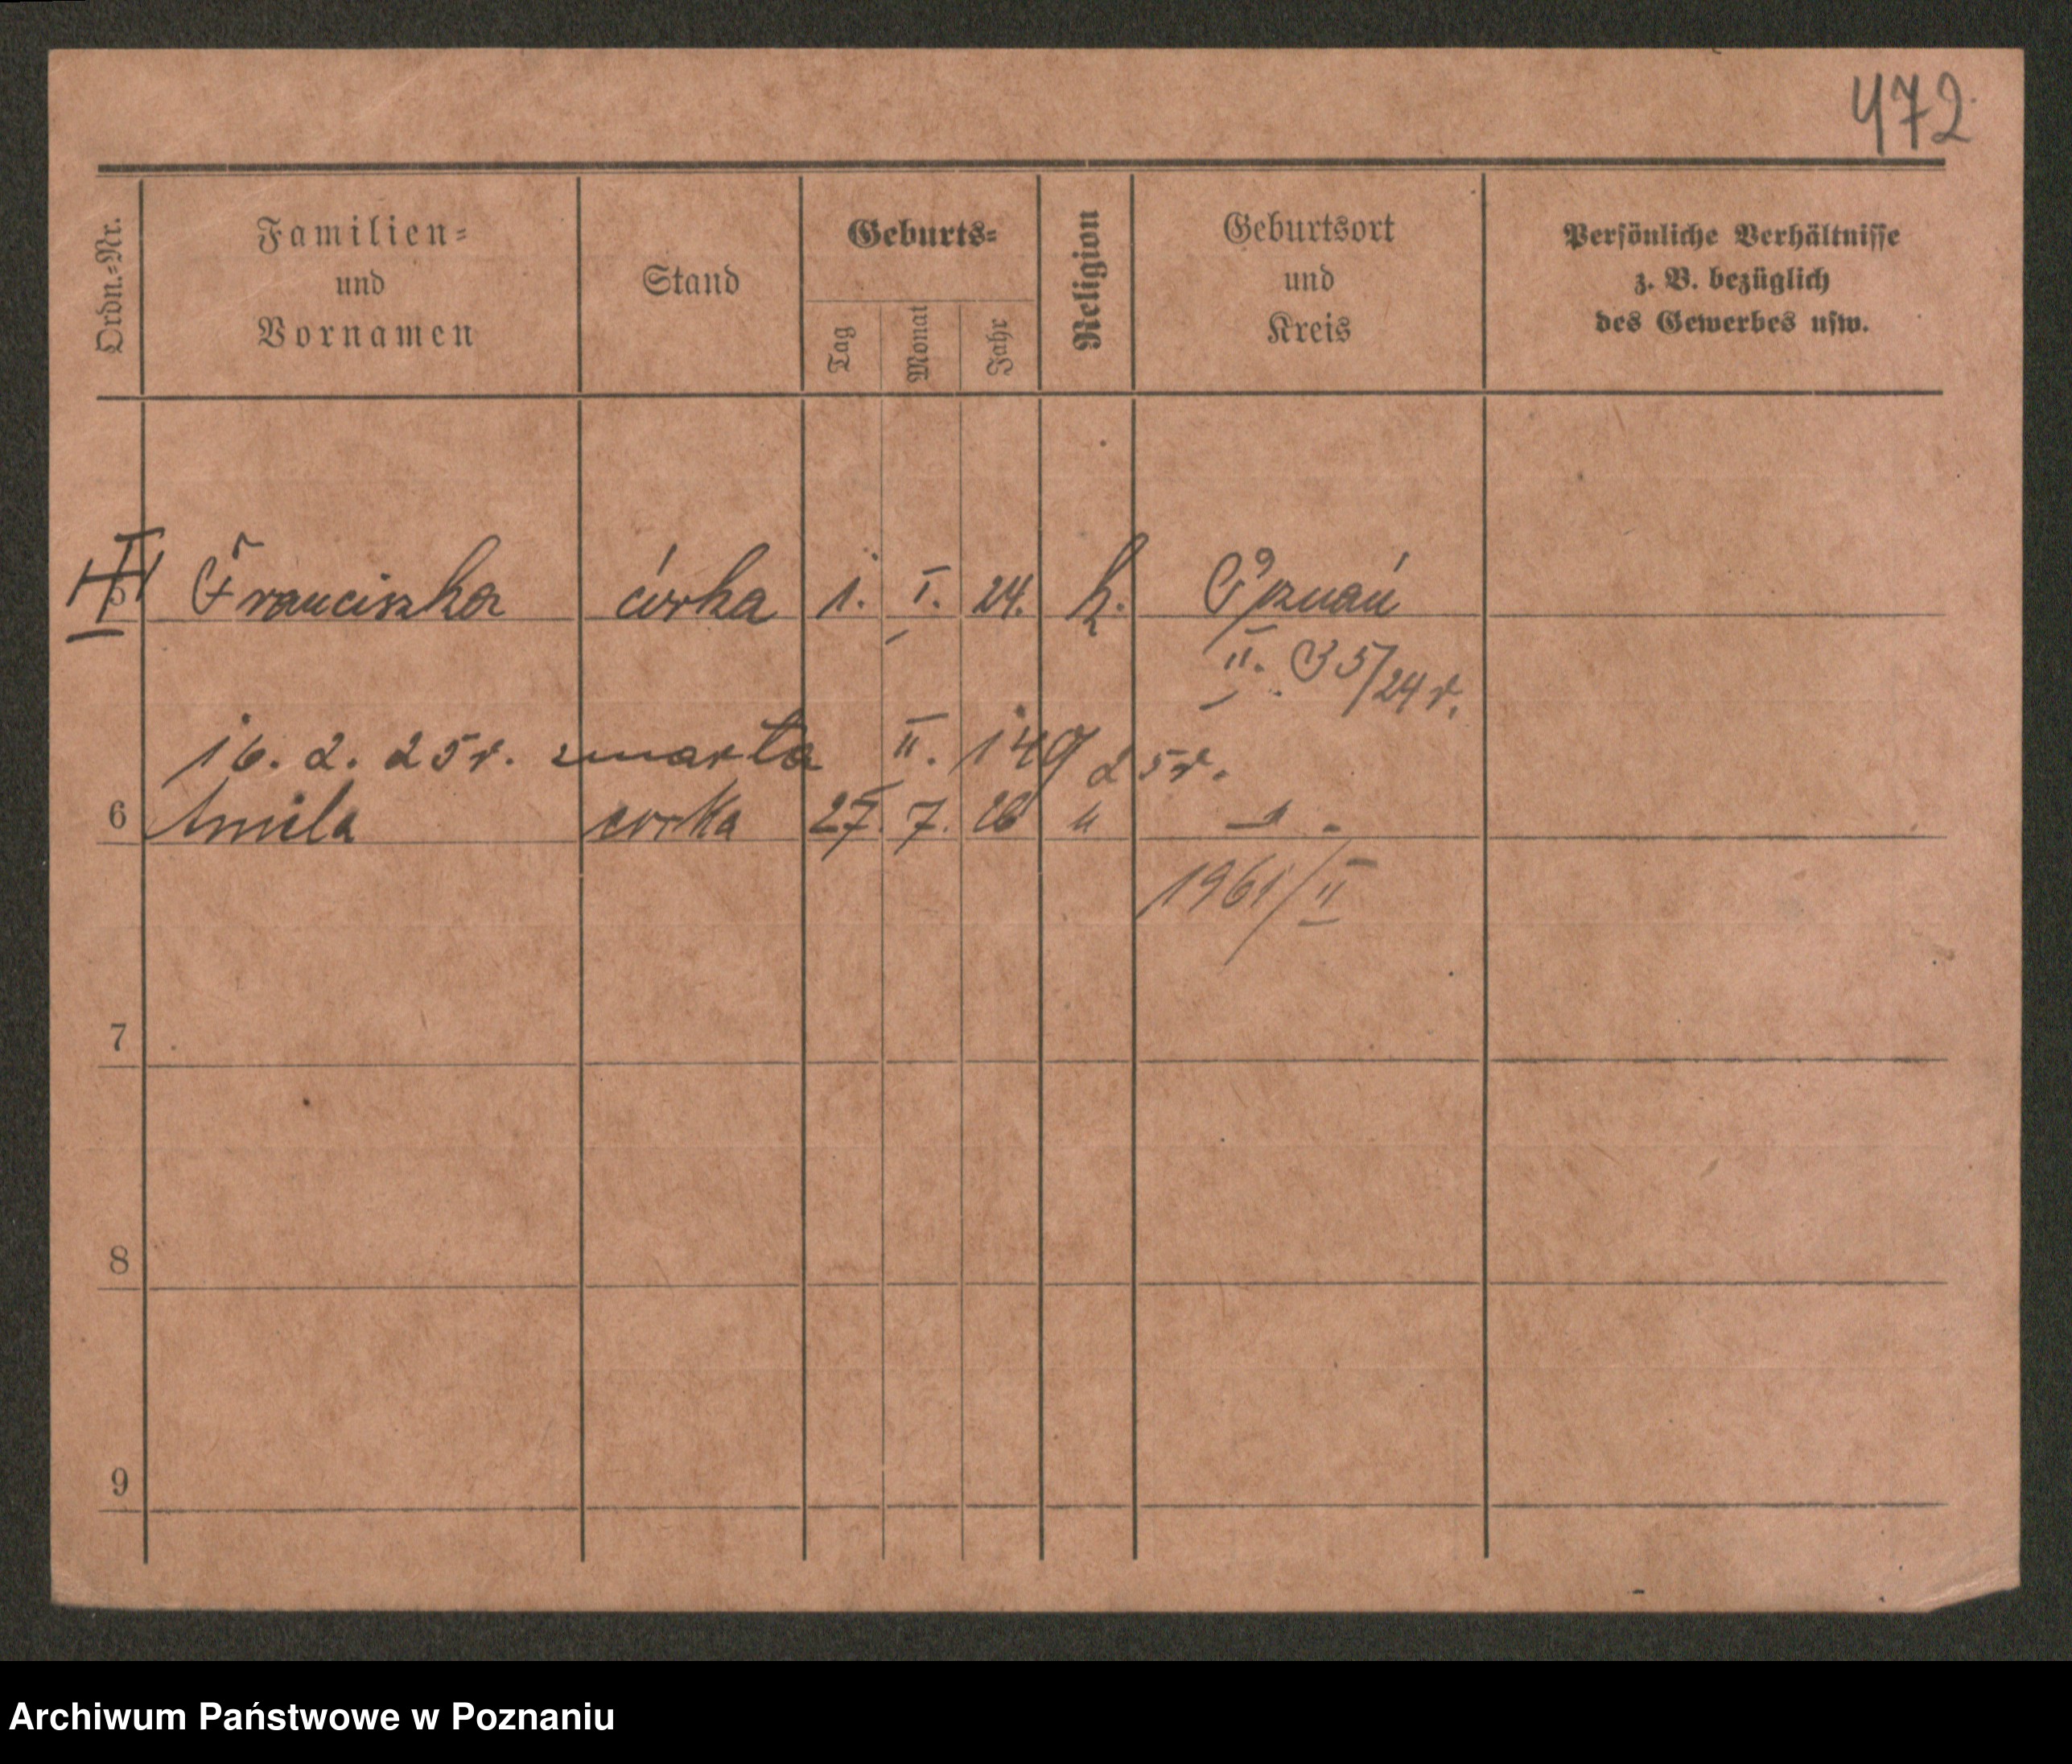 472
Ordn.-Nr.
Familien-
und
Vornamen
Stand
Geburts-
Tag
Monat
Jahr
Religion
Geburtsort
und
Kreis
Persönliche Verhältnisse
z. B. bezüglich
des Gewerbes usw.
5 Franciszka córka 1. I. 24. k. Poznań
II. 35/24 r.
16. 2. 25 r. zmarła II. 149 25 r.
6 Aniela corka 27. 7. 26 "
1961/II
7
8
9
Archiwum Państwowe w Poznaniu